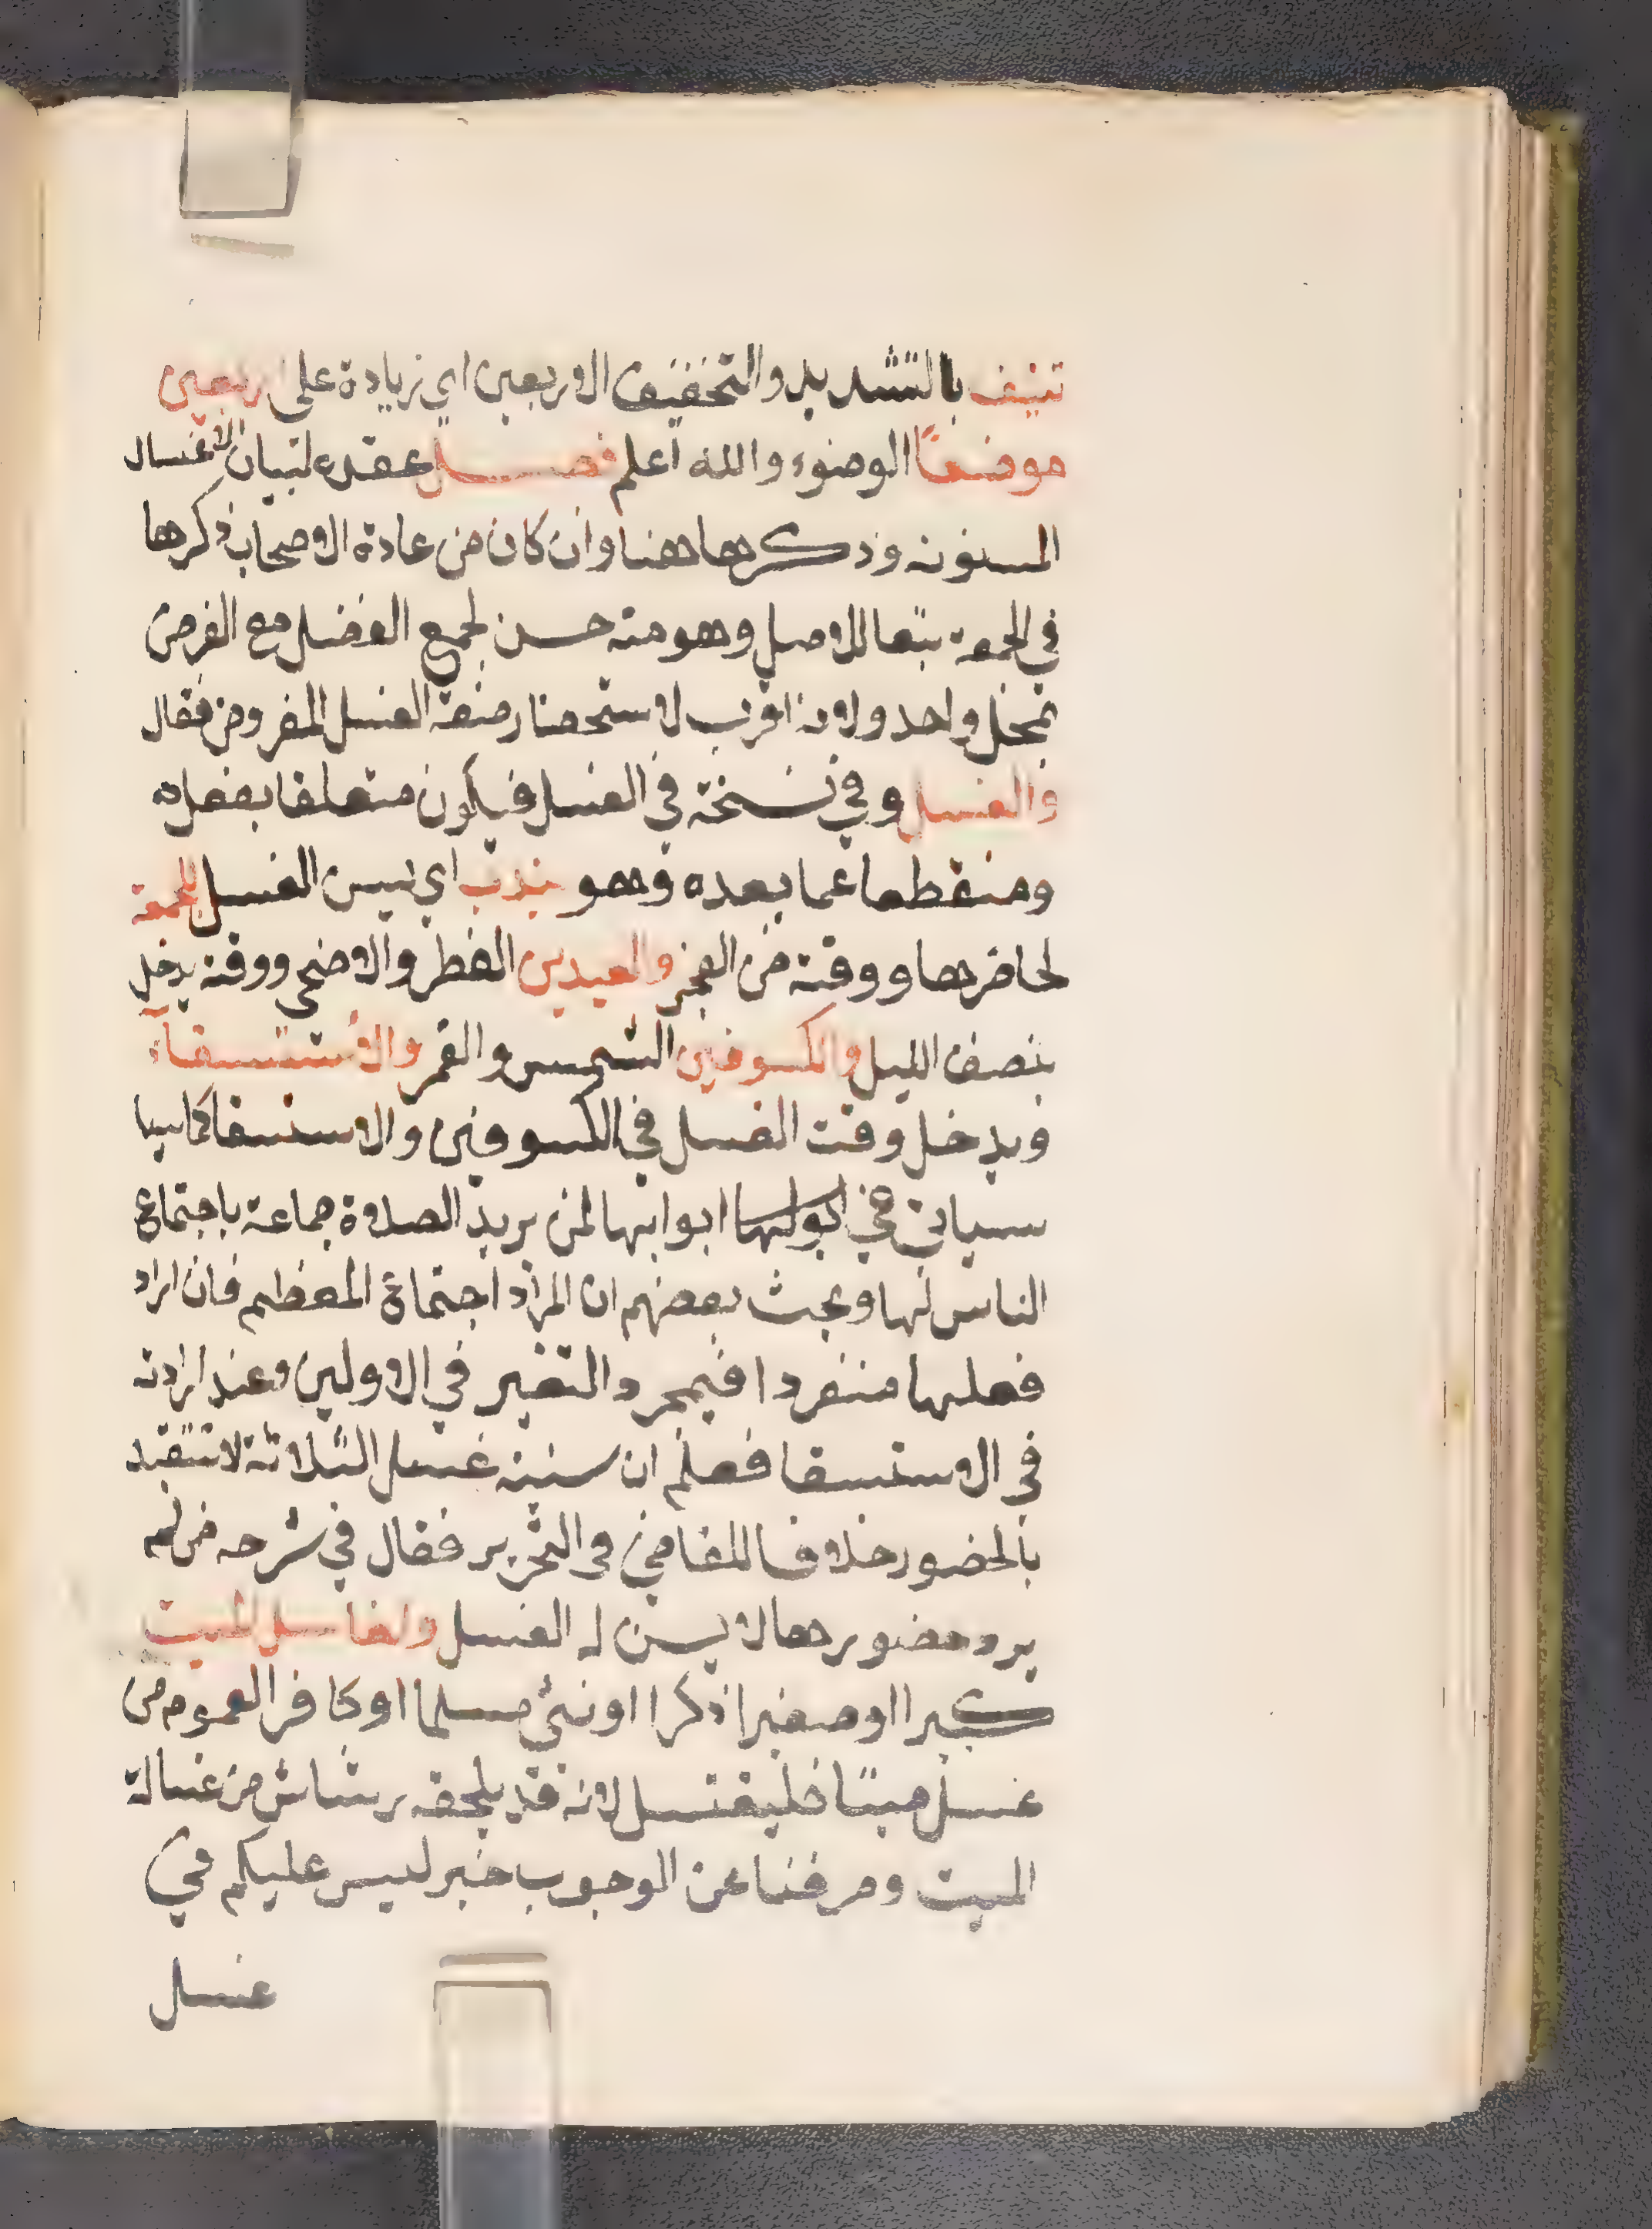 تنيف بالتشديد والتخفيف الاربعين اي زيادة على اربعين
موضعًا الوضوء والله اعلم فصل عقده لتبيان الاغسال
المسنونه وذكرها هنا وان كان من عادة الاصحاب ذكرها
في الجمعة تبعا للاصل وهو منه حسن لجمع الفضل مع الفرض
بمحل واحد ولانه اقرب لاستحضار صفة الغسل المفروض فقال
والغسل وفي نسخة في الغسل فيكون متعلقا بفصله
ومنقطعا عما بعده وهو يندب اي يسن الغسل للجمعة
لحاضرها ووقته من الفجر والعيدين الفطر والاضحى ووقته يدخل
بنصف الليل والكسوفين الشمس والقمر والاستسقاء
ويدخل وقت الغسل في الكسوفين والاستسقا كما سيا
سياتي في ابوابها لمن يريد الصلاة جماعة باجتماع
الناس لها وبحث بعضهم ان المراد اجتماع المعظم فان اراد
فعلها منفردا فبمجرد التغير في الاولين وعند ارادته
في الاستسقا فعلم ان سنية غسل الثلاثة لا تتقيد
بالحضور خلافا للقاضي في التحرير فقال في شرحه من لم
يرد حضورها لا يسن له الغسل ولغاسل الميت
كبيرا او صغيرا ذكرا او نثى مسلما او كافر العموم من
غسل ميتًا فليغتسل لانه قد يلحقه رشاش من غسالة
الميت وصرفنا عن الوجوب خبر ليس عليكم في
غسل